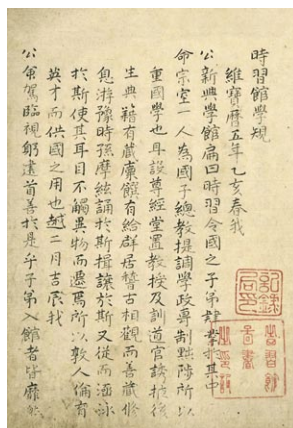 時習館學規
維寶暦五年乙亥春我
公新興學館扁曰時習令國之子弟肄業於其中
命宗室一人為國子總教提調學政專制黜陟所以
重國學也且設尊經堂置教授及訓導官諸於後
生典籍有蔵廩餼有給群居稽古相觀而善蔵脩
息游豫時孫摩絃誦於斯揖讓於斯又從而涵泳
於斯使其耳目不觸異物而遷焉所以敦人倫育
英才而供國之用也越二月吉辰我
公命駕臨視躬建首善於是乎子弟入館者皆靡然
時習館